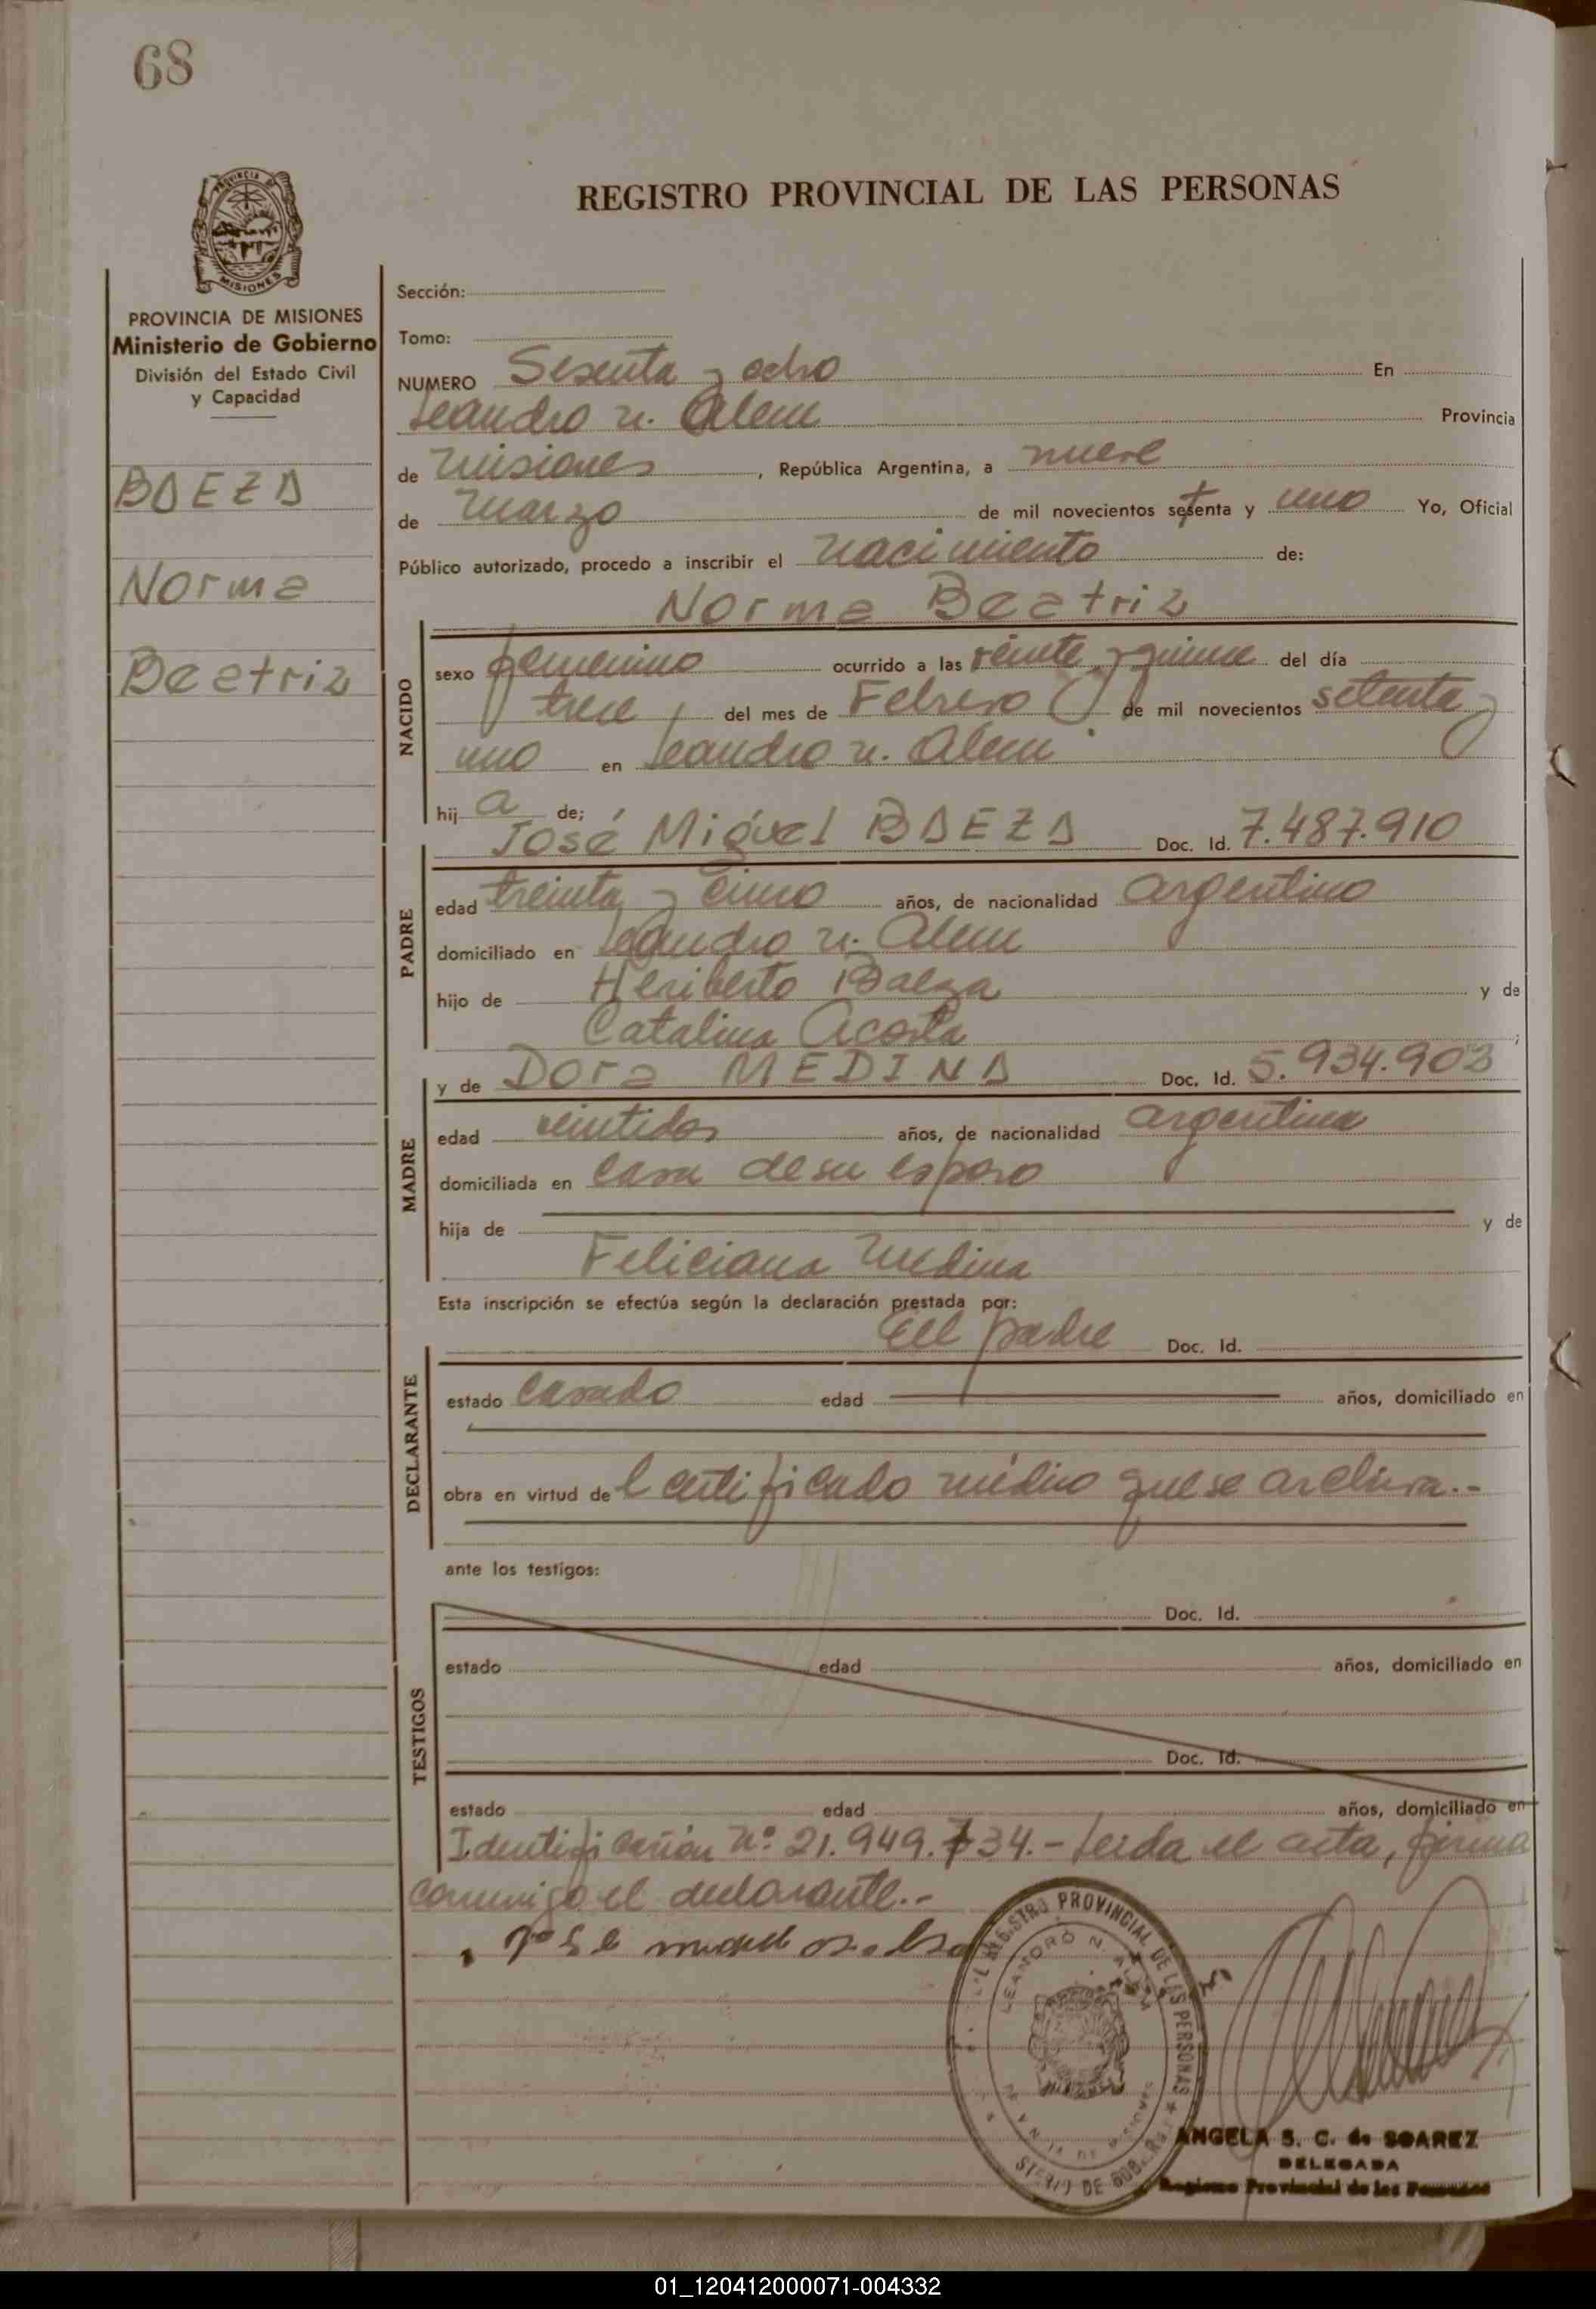 68
PROVINCIA DE
MISIONES
REGISTRO PROVINCIAL DE LAS PERSONAS
PROVINCIA DE MISIONES
Ministerio de Gobierno
División del Estado Civil
y Capacidad
BAEZA
Norma
Beatriz
Sección:
Tomo:
NUMERO Sesenta y ocho En
Leandro N. Alem Provincia
de Misiones, República Argentina, a nueve
de Marzo de mil novecientos setenta y uno Yo, Oficial
Público autorizado, procedo a inscribir el nacimiento de:
Norma Beatriz
NACIDO
sexo femenino ocurrido a las veinte y quince del día
trece del mes de Febrero de mil novecientos setenta y
uno en Leandro N. Alem
hij a de;
José Miguel BAEZA Doc. Id. 7.487.910
PADRE
edad treinta y cinco años, de nacionalidad argentino
domiciliado en Leandro N. Alem
hijo de Heriberto Baeza y de
Catalina Acosta;
y de Dora MEDINA Doc. Id. 5.934.903
MADRE
edad veintidos años, de nacionalidad argentina
domiciliada en casa de su esposo
hija de y de
Feliciana Medina
Esta inscripción se efectúa según la declaración prestada por:
El padre Doc. Id.
DECLARANTE
estado casado edad años, domiciliado en
obra en virtud de l certificado médico que se archiva.-
ante los testigos:
TESTIGOS
Doc. Id.
estado edad años, domiciliado en
Doc. Id.
estado edad años, domiciliado en
Identificación Nº 21.949.734.- Leida el acta, firma
conmigo el declarante.-
REGISTRO PROVINCIAL DE LAS PERSONAS
LEANDRO N. ALEM
ANGELA S. C. de SOAREZ
DELEGADA
Registro Provincial de las Personas
01_120412000071-004332